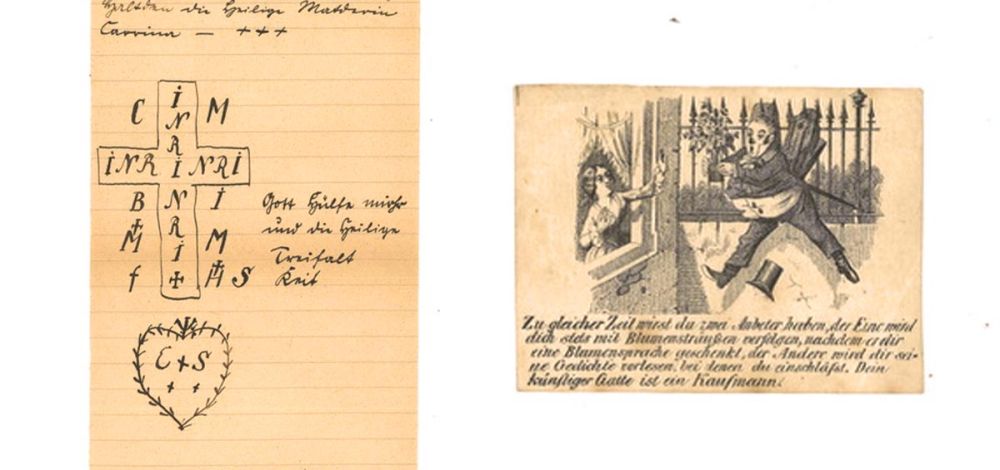 die Heilige
Carrina — +++
C İ M
N
R
İNR İ NRİ
B N İ
R
M İ M
f + H S
Gott Hülfe mihr
und die Heilige
Treifalt
Keit
E + S
+ +
Zu gleicher Zeit wirst du zwei Anbeter haben, der Eine wird
dich stets mit Blumensträußen verfolgen, nachdem er dir
eine Blumensprache geschenkt, der Andere wird dir sei-
ne Gedichte vorlesen, bei denen du einschläfst. Dein
künftiger Gatte ist ein Kaufmann.